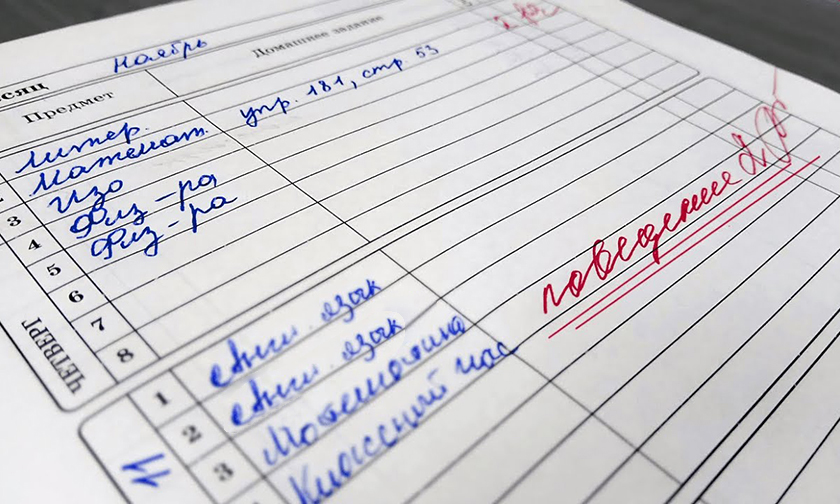 есяц Ноябрь
Предмет Домашнее задание
Литер.
2 Математ. упр. 181, стр. 53
3 Изо
4 Физ-ра
5 Физ-ра
6
7
8
ЧЕТВЕРГ
поведение 2
1 Англ. язык
2 Англ. язык
3 Математика
Классный час
11